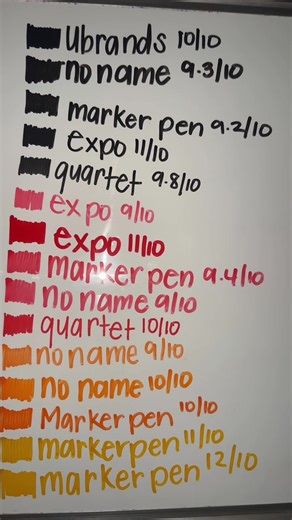 ubrands 10/10
no name 9.3/10
marker pen 9.2/10
expo 11/10
quartet 9.8/10
expo 9/10
expo 11/10
marker pen 9.4/10
no name 9/10
quartet 10/10
no name 9/10
no name 10/10
Marker pen 10/10
markerpen 11/10
marker pen 12/10